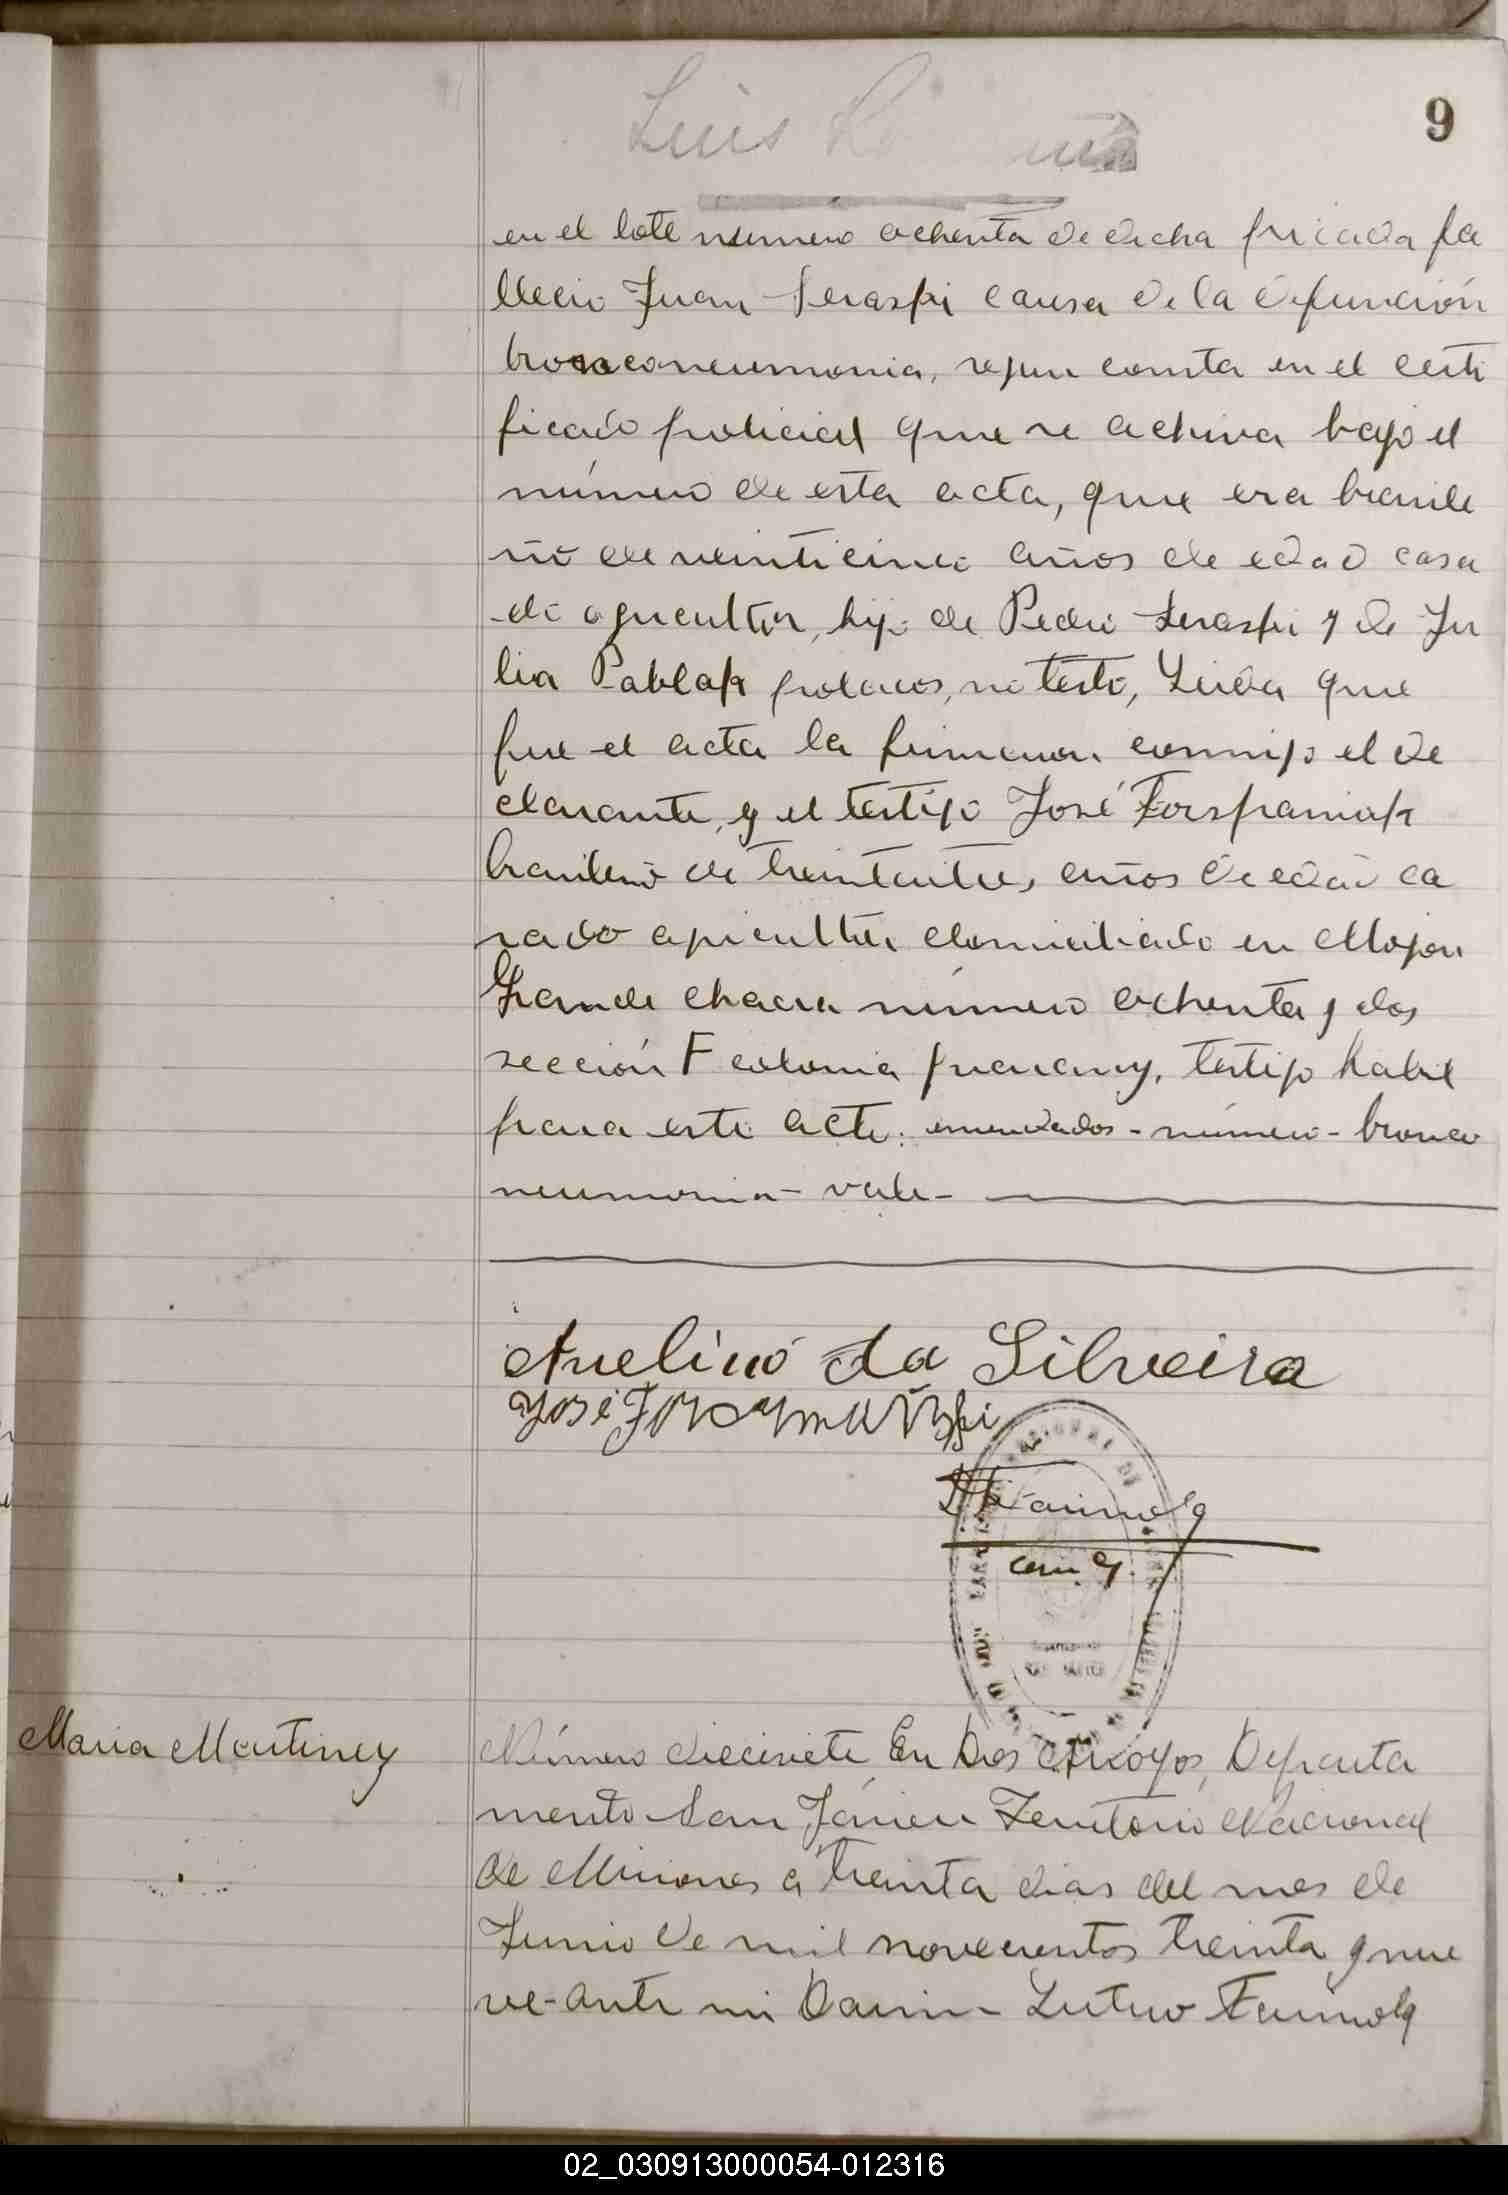 9
Luis
en el lote numero ochenta de dicha picada fa
llecio Juan Seraski causa de la defunción
bronconeumonia, segun consta en el certi
ficado policial que se achiva bajo el
número de esta acta, que era brasile
ño de veinticinco años de edad casa
do agricultor, hijo de Pedro Seraski y de Ju
lia Pablak polacos, no testo, Leida que
fue el acta la firmaron conmigo el de
clarante, y el testigo José
brasileño de treintaitres, años de edad ca
sado agricultor domiciliado en Mojon
Grande chacra número ochenta y dos
sección F colonia guarany, testigo habil
para este acto: enmendados - número - bronco
neumonia - vale -
Avelino da Silveira
José
Maria Martinez
Número diecisiete En Dos Arroyos, Departa
mento San Javier Territorio Nacional
de Misiones a treinta dias del mes de
Junio de mil novecientos treinta y nue
ve - ante mi Darin - Lutero
02_030913000054-012316